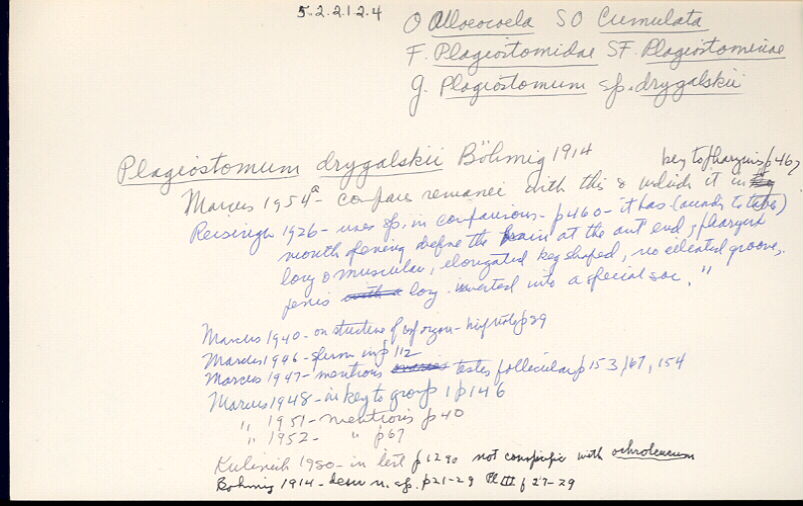 5.2.2.12.4
O Alloeocoela SO Cumulata
F. Plagiostomidae SF. Plagiostominae
g. Plagiostomum sp. drygalskii
Plagiostomum drygalskii Böhmig 1914
key to pharynx p 467
Marcus 1954a - compares remanei with this & include it in
Reisinger 1926 - uses sp. in comparisons - p 460 - it has
mouth opening before the brain at the ant end, pharynx
long & muscular, elongated keg shaped, no ciliated groove,
penis long inverted into a special sac."
Marcus 1940 - on structure of p 29
Marcus 1946 - sperm in p 112
Marcus 1947 - mentions testes follicular p 153, 167, 154
Marcus 1948 - in key to group 1 p 146
" 1951 - mentions p 40
" 1952 - " p 67
1950 - in list p 1290 not conspecific with ochroleucum
Bohmig 1914 - desc n. sp. p 21-29 Pl III f 27-29